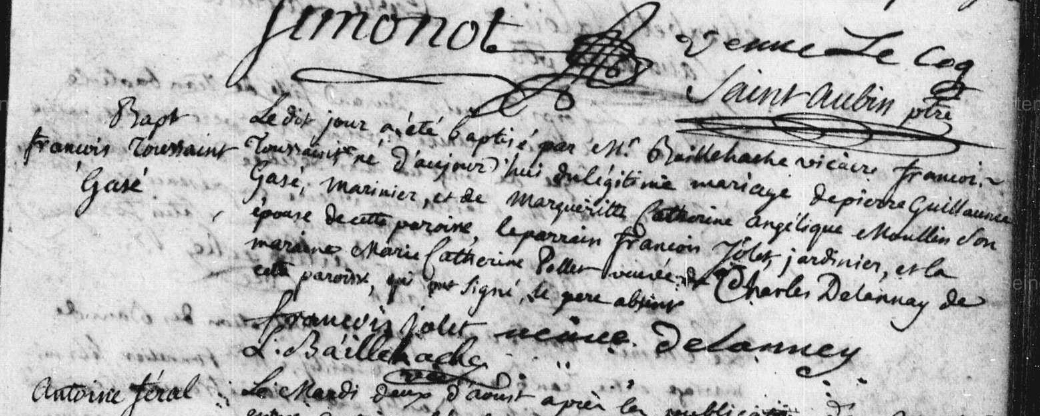 Simonot
veuve Le Coq
Saint Aubin ptre
Bapt
francois Toussaint
Gasé
Le dit jour a été baptisé par Mr. Baillehache vicaire francois
Toussaint né d'aujourd'hui du légitime mariage de pierre Guillaume
Gasé, marinier, et de Margueritte Catherine angélique Moullin son
épouse de cette paroisse, le parrain francois Jolet jardinier, et la
maraine Marie Catherine Pollet veuve de Charles Delannay de
cette paroisse, qui ont signé, le pere absent
francois jolet veuve delanney
L. Baillehache
vic
Antoine féral
Le Mardi deux d'aoust après les